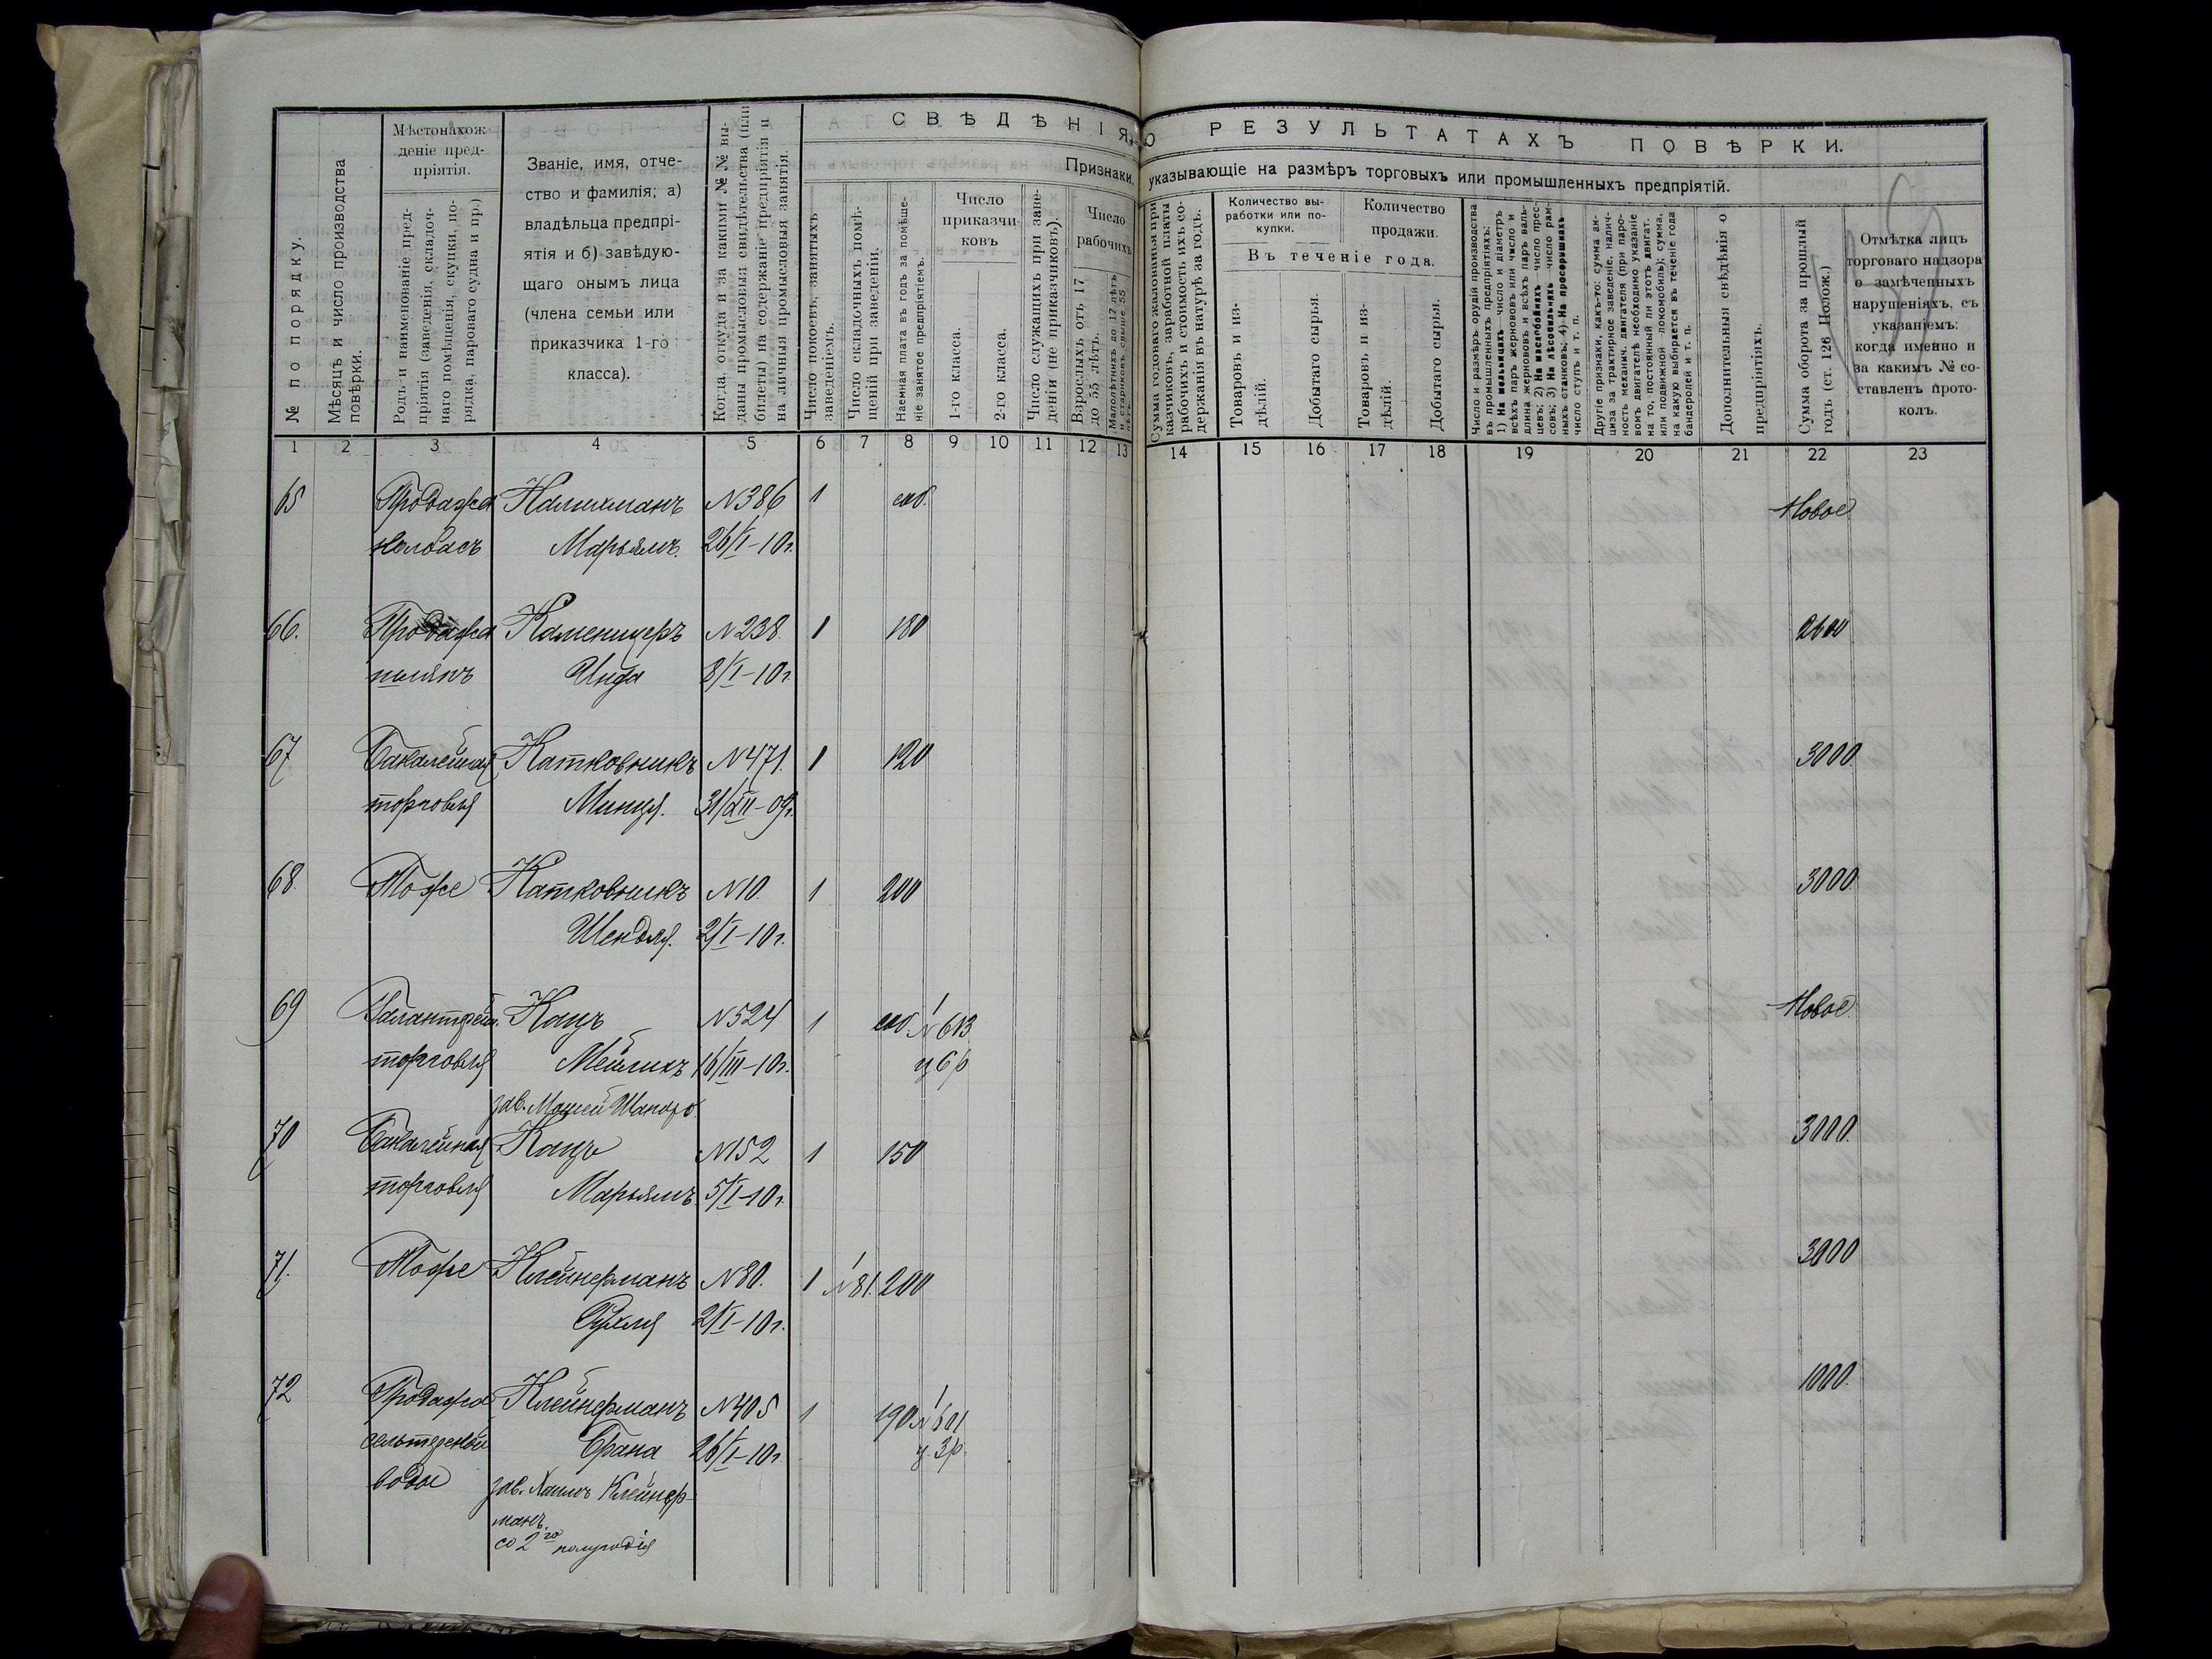 СВѢДѢНІЯ О РЕЗУЛЬТАТАХЪ ПОВѢРКИ.
Признаки, указывающіе на размѣръ торговыхъ или промышленныхъ предпріятій.
№ по порядку.
Мѣсяцъ и число производства
повѣрки.
Мѣстонахож
деніе пред-
пріятія.
Родъ и наименованіе пред-
пріятія (заведенія, складоч-
наго помѣщенія, скупки, по-
рядка, парового судна и пр.)
Званіе, имя, отче-
ство и фамилія; а)
владѣльца предпрі-
ятія и б) завѣдую-
щаго онымъ лица
(члена семьи или
приказчика 1-го
класса).
Когда, откуда и за какими № № вы-
даны промысловыя свидѣтельства (или
билеты) на содержаніе предпріятія и
на личныя промысловыя занятія.
Число покоевъ, занятыхъ
заведеніемъ.
Число складочныхъ помѣ-
щеній при заведеніи.
Наемная плата въ годъ за помѣще-
ніе занятое предпріятіемъ.
Число
приказчи-
ковъ
1-го класса.
2-го класса.
Число служащихъ при заве-
деніи (не приказчиковъ).
Число
рабочихъ
Взрослыхъ отъ 17
до 55 лѣтъ.
Малолѣтнихъ до 17 лѣтъ
и стариковъ свыше 55
лѣтъ.
Сумма годового жалованья при
казчиковъ, заработной платы
рабочихъ и стоимость ихъ со-
держанія въ натурѣ за годъ.
Количество вы-
работки или по-
купки.
Количество
продажи.
Въ теченіе года.
Товаровъ и из-
дѣлій.
Добытаго сырья.
Товаровъ и из-
дѣлій.
Добытаго сырья.
Число и размѣръ орудій производства
въ промышленныхъ предпріятіяхъ:
1) На мельницахъ число и діаметръ
всѣхъ паръ жернововъ или число и
длина жернововъ и всѣхъ паръ валь-
цевъ; 2) На маслобойняхъ число прес-
совъ; 3) На лѣсопильняхъ число рам-
ныхъ станковъ; 4) На просорушкахъ
число ступъ и т. п.
Другіе признаки, какъ-то: сумма ак-
циза за трактирное заведеніе, налич-
ность механич. двигателя (при паро-
вомъ двигателѣ необходимо указаніе
на то, постоянный ли этотъ двигат.
или подвижной—локомобиль); сумма,
на какую выбирается въ теченіе года
бандеролей и т. п.
Дополнительныя свѣдѣнія о
предпріятіяхъ.
Сумма оборота за прошлый
годъ (ст. 126 Полож.)
Отмѣтка лицъ
торговаго надзора
о замѣченныхъ
нарушеніяхъ, съ
указаніемъ:
когда именно и
за какимъ № со-
ставленъ прото-
колъ.
1 2 3 4 5 6 7 8 9 10 11 12 13 14 15 16 17 18 19 20 21 22 23
65 Продажа Калихманъ N386 1 соб. Новое
колбасъ Марьямъ. 26/I-10г.
66. Продажа Каменщеръ N238. 1 180 2600
шляпъ Инда 8/I-10г.
67 Бакалейная Катковникъ N471. 1 120 3000
торговля Минця. 31/XII-09г.
68. Тоже Катковникъ N10. 1 200 3000
Шендля. 2/I-10г.
69 Галантерейн. Кацъ N524 1 соб. 1 N613 Новое.
торговля Мейлихъ 16/III-10г. ц 6 р
зав. Мошей Шапиро
70 Бакалейная Кацъ N152 1 150 3000.
торговля Марьямъ 5/I-10г.
71. Тоже Клейнерманъ N80. 1 1 N81. 200 3000
Рухля 2/I-10г.
72 Продажа Клейнерманъ N405 1 190 1 N601 1000.
сельтерской Франа 26/I-10г. ц. 3 р.
воды зав. Хаимъ Клейнер-
манъ.
со 2го полугодія